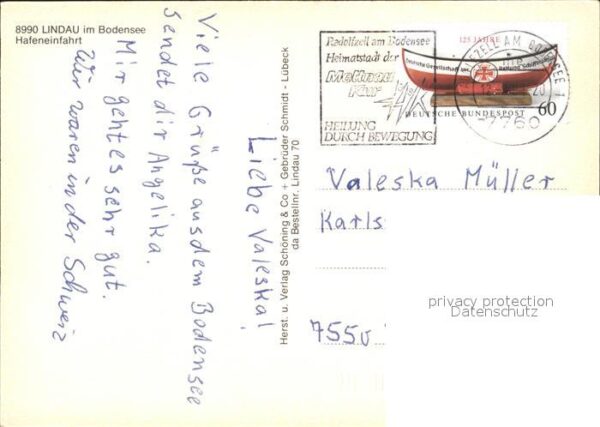 8990 LINDAU im Bodensee
Hafeneinfahrt
Liebe Valeska!
Viele Grüße aus dem Bodensee
sendet dir Angelika.
Mir geht es sehr gut.
Wir waren in der Schweiz
Herst. u. Verlag Schöning & Co + Gebrüder Schmidt - Lübeck
da Bestellnr. Lindau 70
Radolfzell am Bodensee
Heimatstadt der
Mettnau
Kur
HEILUNG
DURCH BEWEGUNG
125 JAHRE
Deutsche Gesellschaft zur Rettung Schiffbrüchiger
DEUTSCHE BUNDESPOST
60
7760
Valeska Müller
Karls
7550
privacy protection
Datenschutz